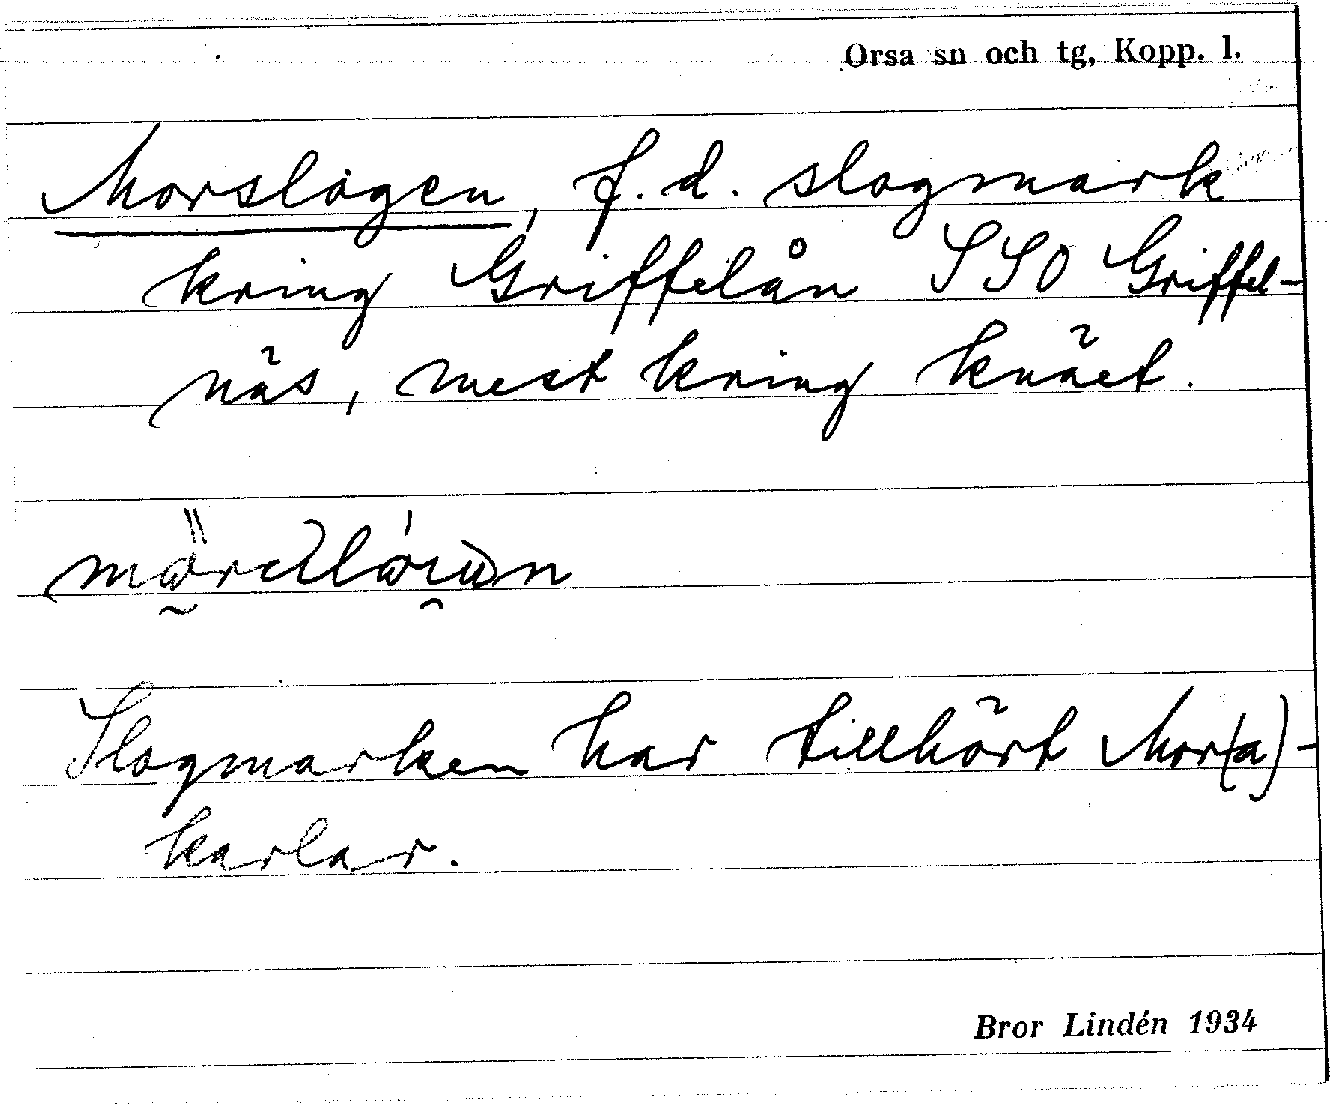 Orsa sn och tg, Kopp. l.
Morslogen, f.d. slogmark
kring Griffelån SSO Griffel-
näs, mest kring knäet.
Slogmarken har tillhört Mor(a)-
karlar.
Bror Lindén 1934